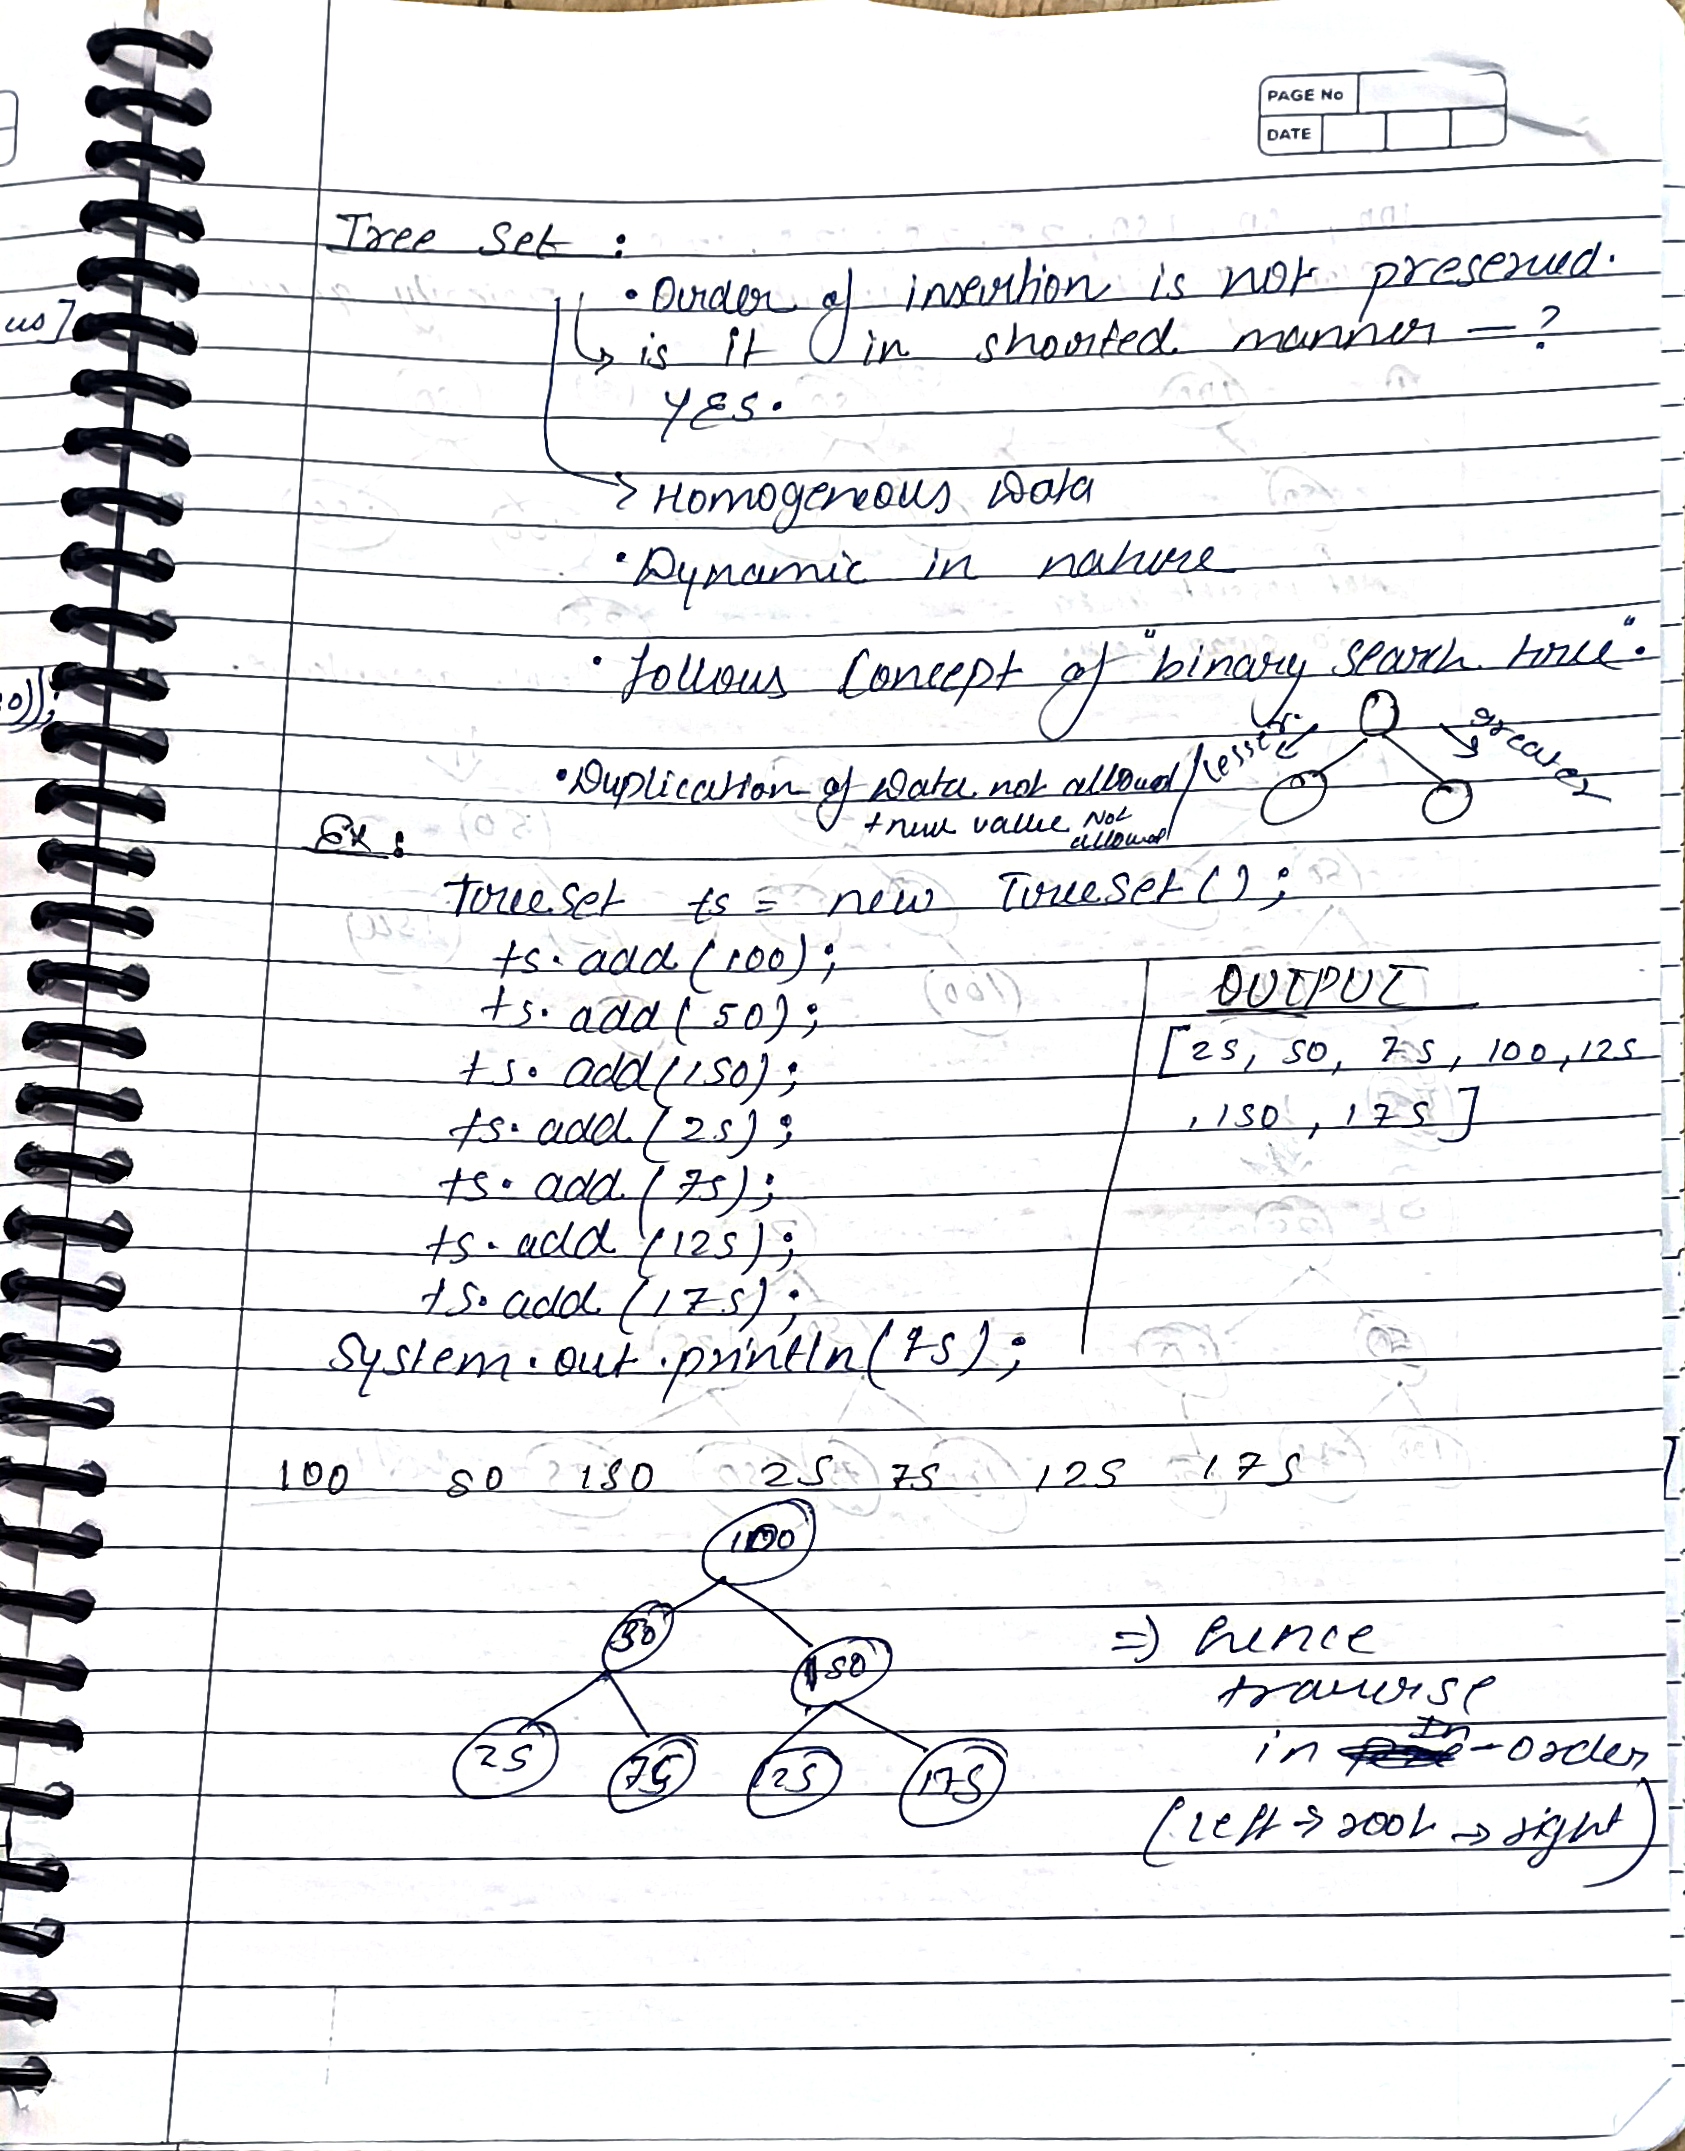 PAGE No
DATE
us]
Tree Set :
• Order of insertion is not preserved.
↳ is it in shorted manner — ?
YES.
→ Homogeneous Data
• Dynamic in nature
• follows Concept of "binary search tree".
lesser
greater
• Duplication of Data not allowed
+ null value Not
allowed
Ex :
TreeSet ts = new TreeSet();
ts.add(100);
ts.add(50);
ts.add(150);
ts.add(25);
ts.add(75);
ts.add(125);
ts.add(175);
System.out.println(ts);
OUTPUT
[25, 50, 75, 100, 125
, 150, 175]
100 50 150 25 75 125 175
100
50
150
25 75 125 175
=) hence
traverse
in In-order
(left → root → right)